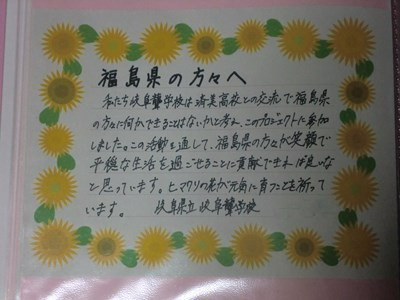 福島県の方々へ
私たち岐阜聾学校は済美高校との交流で福島県
の方々に何かできることはないかと考え、このプロジェクトに参加
しました。この活動を通して、福島県の方々が笑顔で
平穏な生活を過ごせることに貢献できれば良いな
と思っています。ヒマワリの花が元気に育つことも祈って
います。
岐阜県立岐阜聾学校